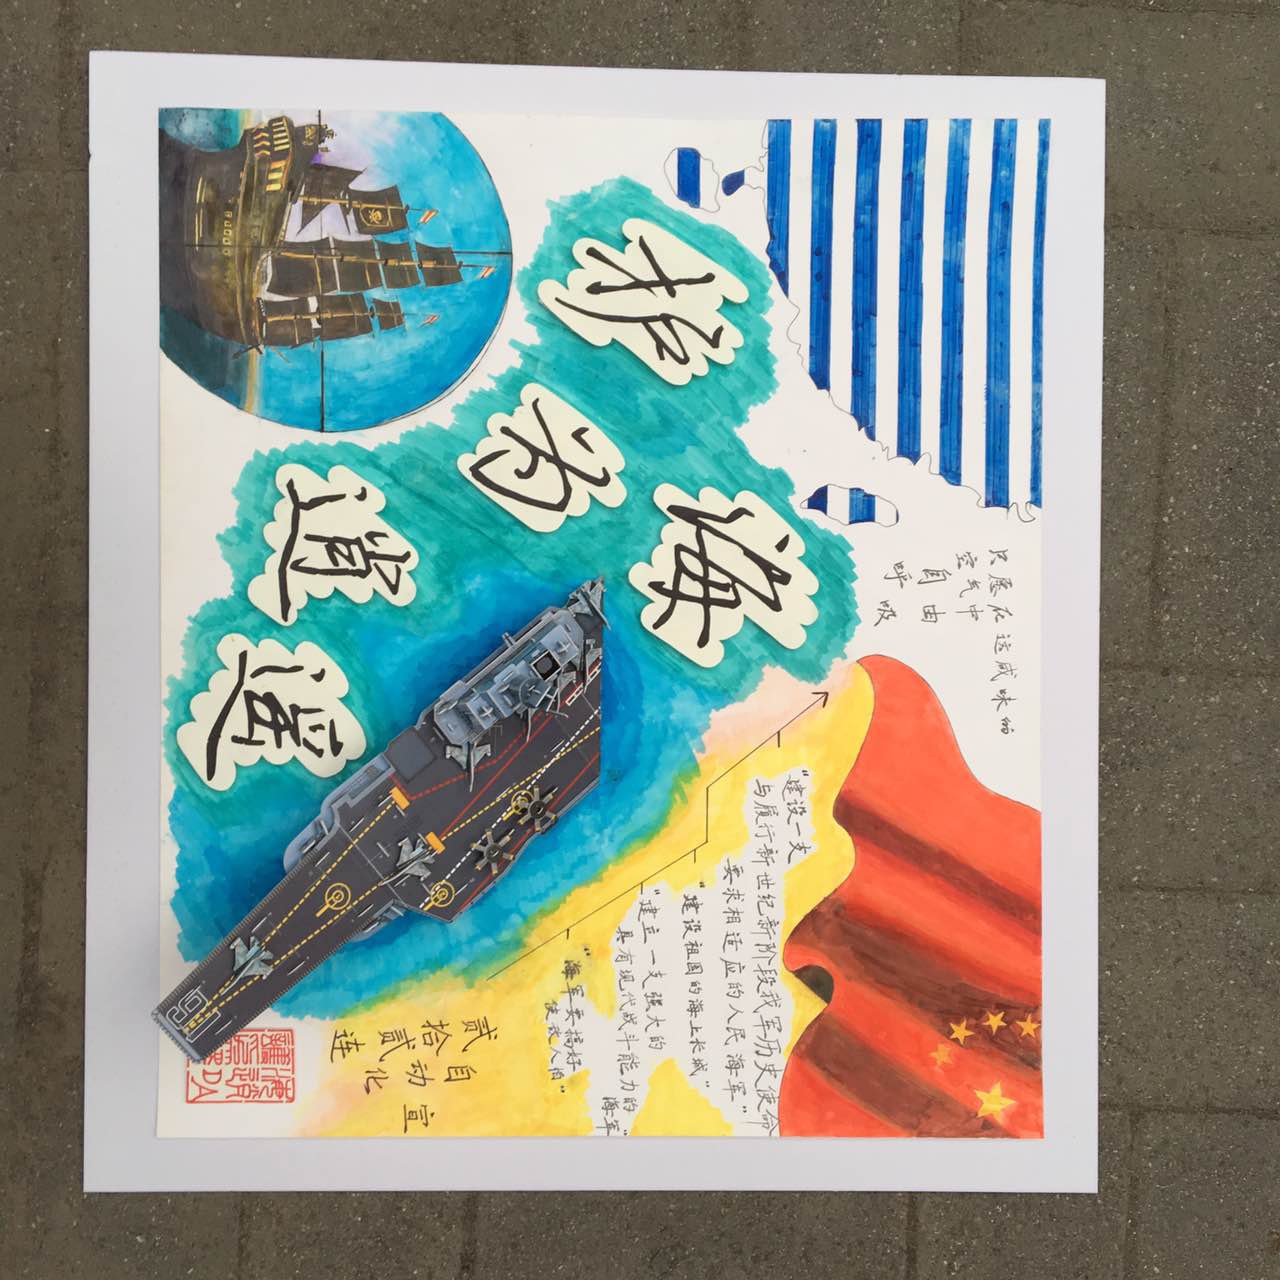 只愿在这咸味的
空气中
自由
呼吸
护海
为
逍遥
“建设一支
与履行新世纪新阶段我军历史使命
要求相适应的人民海军”
“建设祖国的海上长城”
“建立一支强大的
具有现代战斗能力的
海军”
“海军要搞好
使敌人怕”
宣
自动化
贰拾贰连